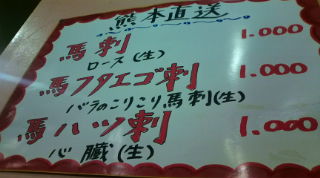 熊本直送
馬刺 1.000
ロース(生)
馬フタエゴ刺 1.000
バラのこりこり馬刺(生)
馬ハツ刺 1.000
心臓(生)